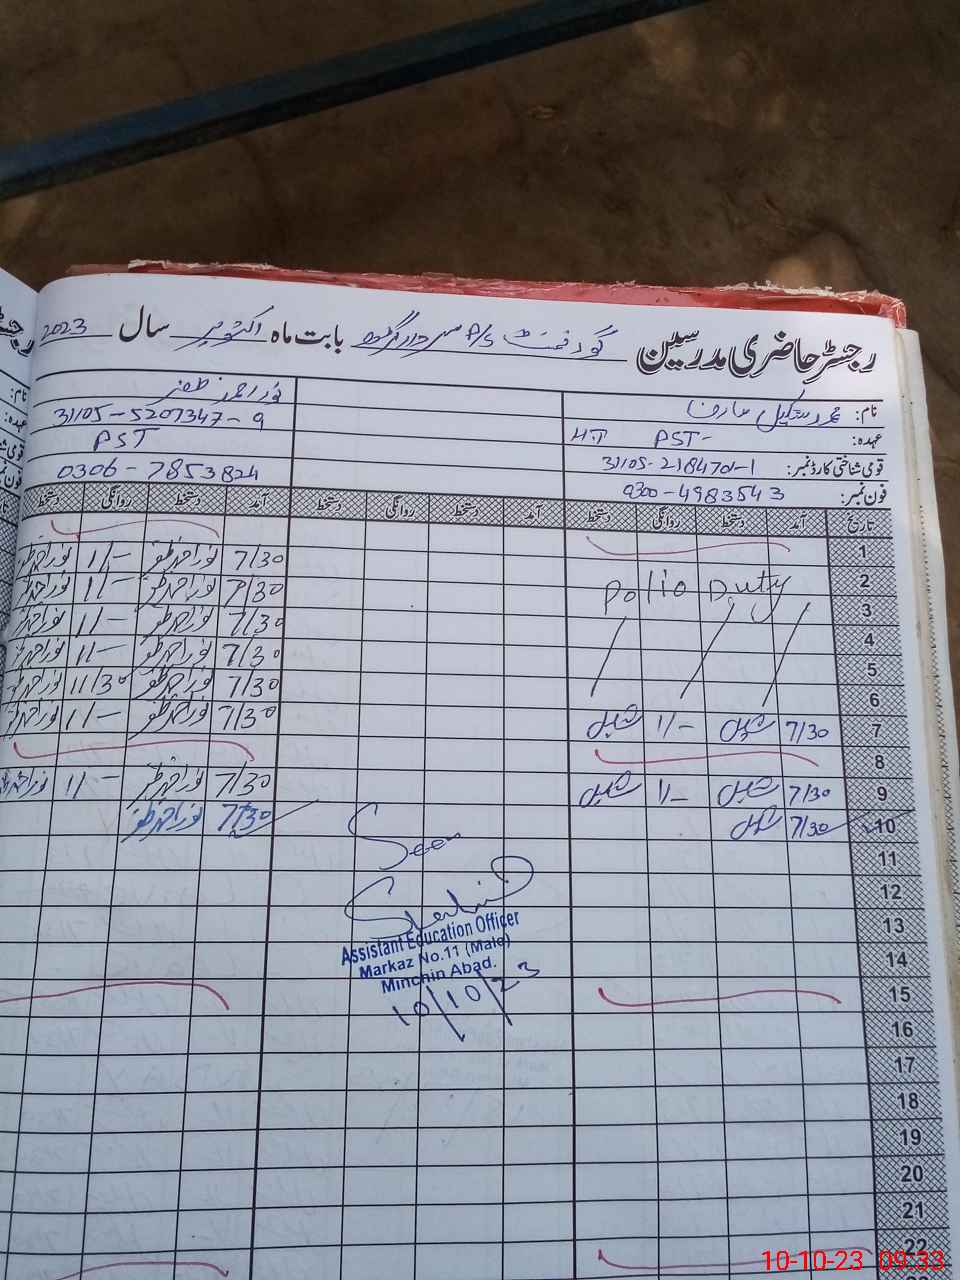 رجسٹر حاضری مدرسین گورنمنٹ P/S سردار گڑھ بابت ماہ اکتوبر سال 2023
نام: محمد شکیل نور احمد ظفر
31105-5207347-9
عہدہ: PST- PST
قومی شناختی کارڈ نمبر: 31105-2184701-1
فون نمبر: 0300-4983543 0306-7853824
تاریخ آمد دستخط روانگی دستخط آمد دستخط روانگی دستخط آمد دستخط روانگی دستخط
1
2 Polio Duty 7/30 نور احمد ظفر 1/- نور احمد ظفر
3 7/30 نور احمد ظفر 1/- نور احمد ظفر
4 7/30 نور احمد ظفر 1/- نور احمد ظفر
5 7/30 نور احمد ظفر 1/- نور احمد ظفر
6 7/30 نور احمد ظفر 11/30 نور احمد ظفر
7 7/30 شکیل 1/- شکیل 7/30 نور احمد ظفر 1/- نور احمد ظفر
8
9 7/30 شکیل 1/- شکیل 7/30 نور احمد ظفر 1/- نور احمد ظفر
10 7/30 شکیل 7/30 نور احمد ظفر
Seen
11
12
Assistant Education Officer
Markaz No.11 (Male)
Minchin Abad.
10/10/23
13
14
15
16
17
18
19
20
21
22
10-10-23 09:33